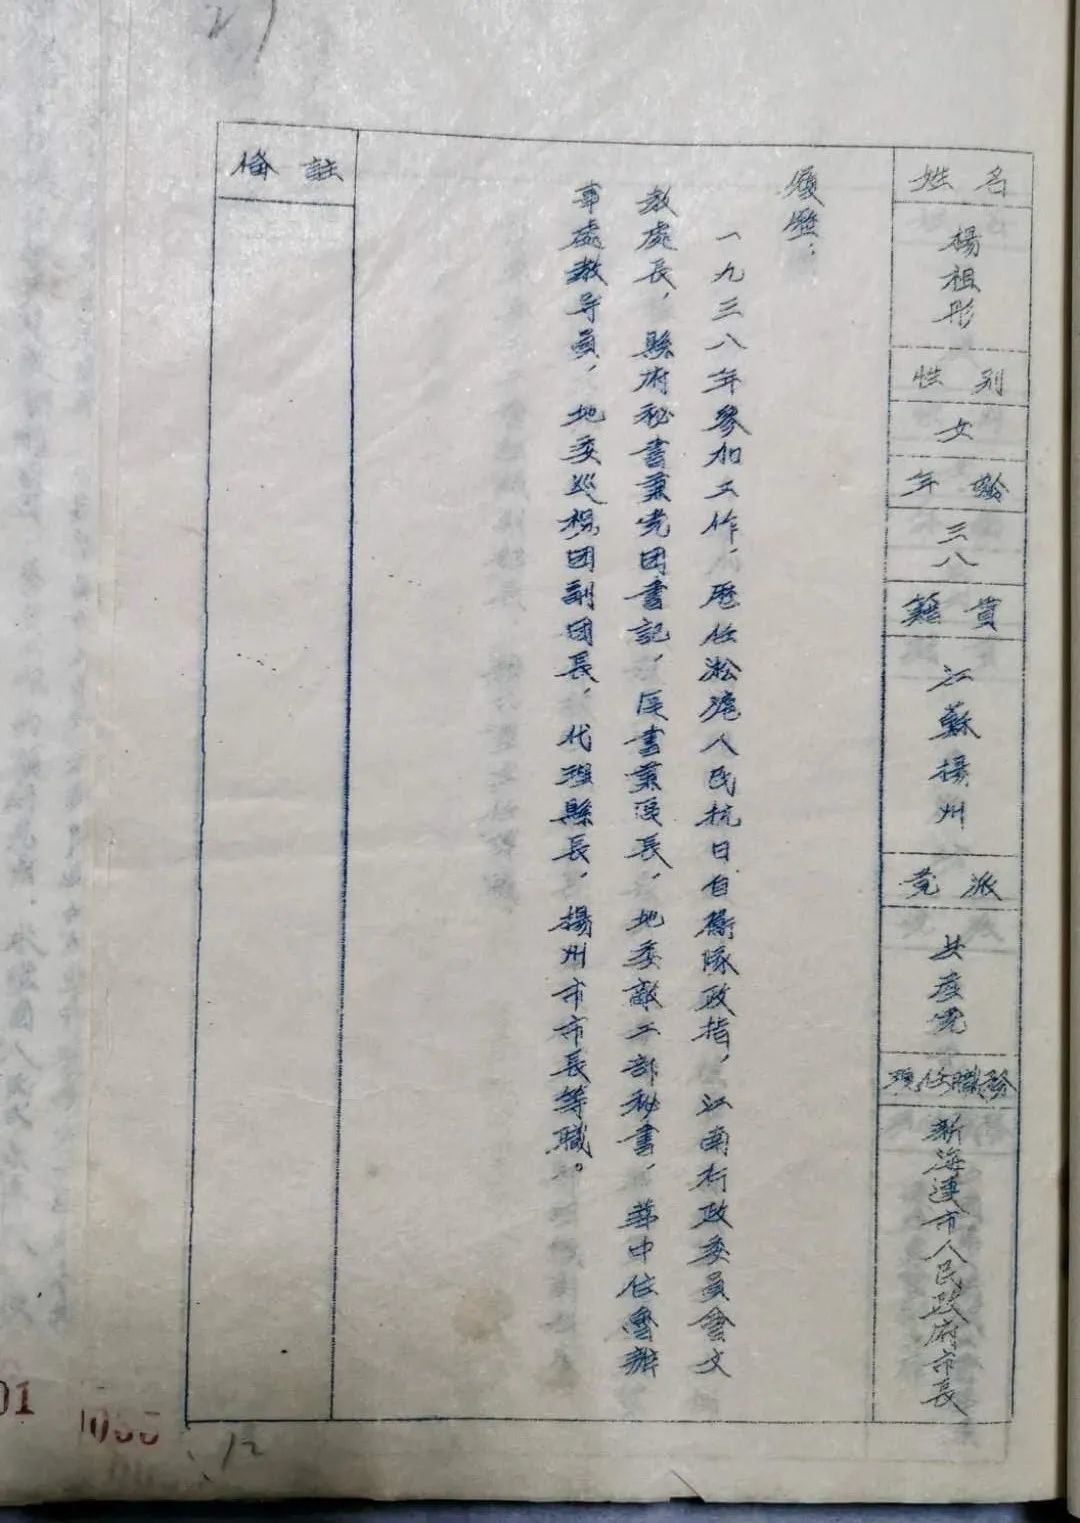 姓名
楊祖彤
性别
女
年齡
三八
籍貫
江蘇揚州
党派
共產党
現任職務
新海連市人民政府市長
履歷：
一九三八年參加工作，歷任淞滬人民抗日自衛隊政指，江南行政委員會文
教處長，縣府秘書兼党团書記，区書兼区長，地委敵工部秘書，華中位會辦
事處教导員，地委巡視团副团長，代理縣長，揚州市市長等職。
備註
21
01
1055
12